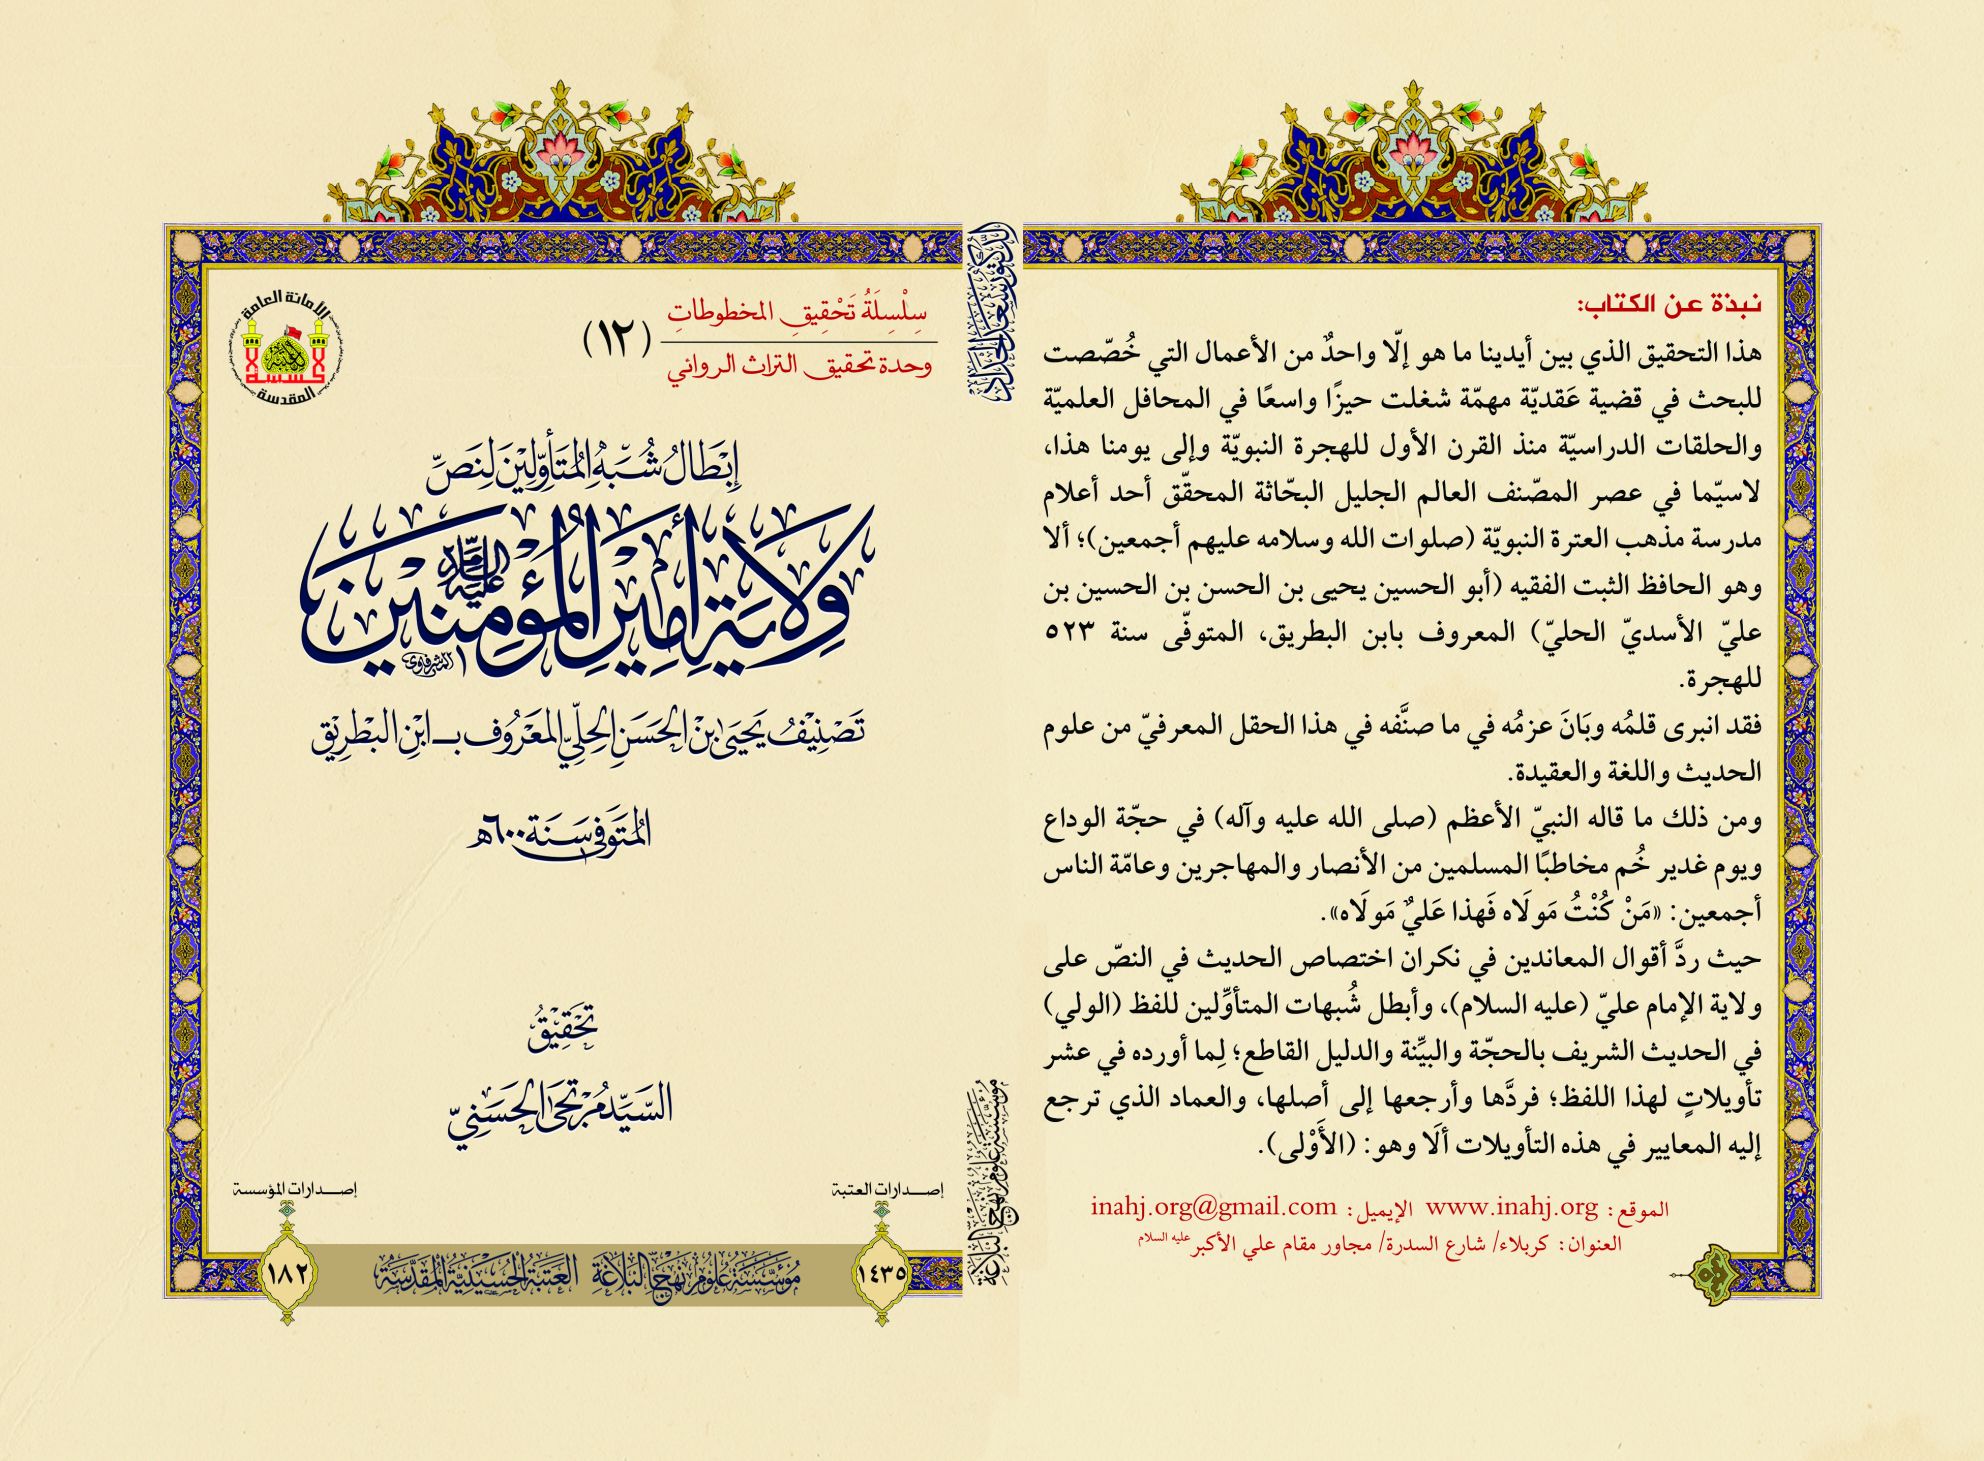 سِلْسِلَةُ تَحْقِيقِ المخطوطاتِ
(١٢)
وحدة تحقيق التراث الروائي
الأمانة العامة
المقدسة
إِبْطَالُ شُبَهِ المُتَأَوِّلِيْنَ لِنَصِّ
وِلَايَةِ أَمِيرِ الْمُؤْمِنِين
عليه السلام
تَصْنِيْفُ يَحْيَى بْنِ الحَسَنِ الحِلِّيِّ المَعْرُوف بـ ابْنِ البَطْرِيْقِ
المُتَوَفى سَنَة ٦٠٠هـ
تَحْقِيْقُ
السَّيِّد مُرْتَجَى الحَسَنِيّ
إصـدارات العتبة
إصـدارات المؤسسة
١٤٣٥
مُؤَسَّسَةُ عُلُومِ نَهْجِ البَلَاغَةِ
العَتَبَةُ الحُسَيْنِيَّةُ المُقَدَّسَةُ
١٨٢
مؤسسة علوم نهج البلاغة
نبذة عن الكتاب:
هذا التحقيق الذي بين أيدينا ما هو إلّا واحدٌ من الأعمال التي خُصّصت
للبحث في قضية عَقديّة مهمّة شغلت حيزًا واسعًا في المحافل العلميّة
والحلقات الدراسيّة منذ القرن الأول للهجرة النبويّة وإلى يومنا هذا،
لاسيّما في عصر المصّنف العالم الجليل البحّاثة المحقّق أحد أعلام
مدرسة مذهب العترة النبويّة (صلوات الله وسلامه عليهم أجمعين)؛ ألا
وهو الحافظ الثبت الفقيه (أبو الحسين يحيى بن الحسن بن الحسين بن
عليّ الأسديّ الحليّ) المعروف بابن البطريق، المتوفّى سنة ٥٢٣
للهجرة.
فقد انبرى قلمُه وبَانَ عزمُه في ما صنَّفه في هذا الحقل المعرفيّ من علوم
الحديث واللغة والعقيدة.
ومن ذلك ما قاله النبيّ الأعظم (صلى الله عليه وآله) في حجّة الوداع
ويوم غدير خُم مخاطبًا المسلمين من الأنصار والمهاجرين وعامّة الناس
أجمعين: «مَنْ كُنْتُ مَولَاه فَهذا عَليٌ مَولَاه».
حيث ردَّ أقوال المعاندين في نكران اختصاص الحديث في النصّ على
ولاية الإمام عليّ (عليه السلام)، وأبطل شُبهات المتأوِّلين للفظ (الولي)
في الحديث الشريف بالحجّة والبيِّنة والدليل القاطع؛ لِما أورده في عشر
تأويلاتٍ لهذا اللفظ؛ فردَّها وأرجعها إلى أصلها، والعماد الذي ترجع
إليه المعايير في هذه التأويلات ألَا وهو: (الأَوْلى).
الموقع: www.inahj.org الإيميل: inahj.org@gmail.com
العنوان: كربلاء/ شارع السدرة/ مجاور مقام علي الأكبر عليه السلام